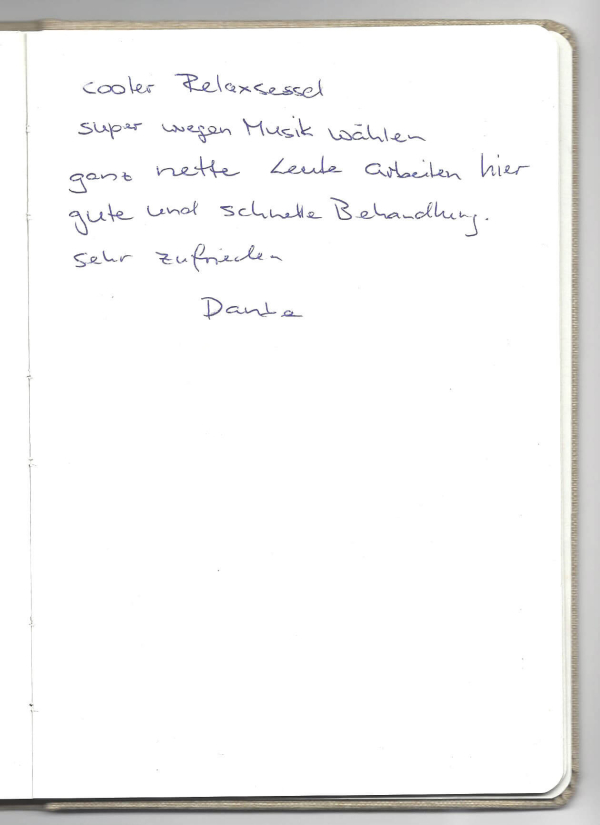 cooler Relaxsessel
super wegen Musik wählen
ganz nette Leute arbeiten hier
gute und schnelle Behandlung.
sehr zufrieden
Danke